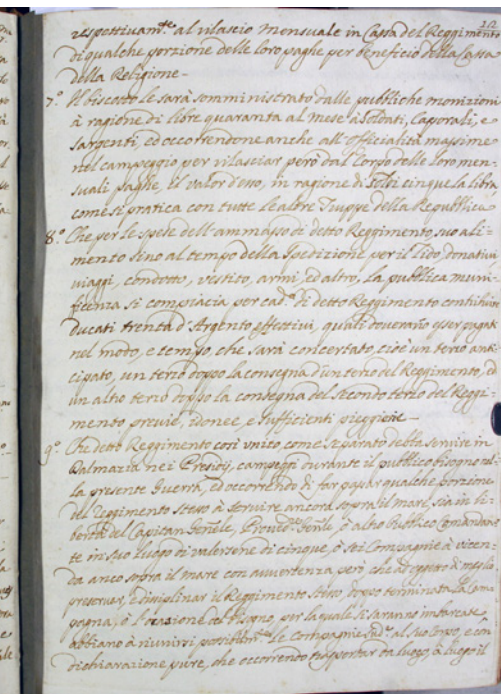 respettivam.te al rilascio mensuale in Cassa del Reggimento
di qualche porzione delle loro paghe per beneficio della Cassa
della Religione-
7.º Il biscotto le sarà somministrato dalle pubbliche monizioni
à ragione di libre quaranta al mese à Soldati, Caporali, e
Sargenti, ed occorrendone anche all'Officialità massime
nel campeggio per rilasciar però dal Corpo delle loro men=
suali paghe, il valor d'esso, in ragione di Soldi cinque la libra
come si pratica con tutte le altre Truppe della Republica
8.º Che per le spese dell'ammasso di detto Reggimento, suo ali=
mento sino al tempo della Spedizione per il Lido, donativi
viaggi, condotto, vestito, armi, ed altro, la pubblica muni=
ficenza si compiacia per cad.º di detto Reggimento contribuir
ducati trenta d'Argento effettivi, quali doveranno esser pagati
nel modo, e tempo, che sarà concertato, cioè un terzo anti=
cipato, un terzo doppo la consegna d'un terzo del Reggimento, ed
un altro terzo doppo la consegna del Secondo terzo del Reggi=
mento previe, idonee, e sufficienti pieggerie-
9.º Che detto Reggimento così unito, come separato debba servire in
Dalmazia nei Presidij, campeggi durante il pubblico bisogno nel=
la presente Guerra, ed occorrendo di far passar qualche porzione
del Reggimento stesso à servire ancora sopra il mare, sia in li=
bertà del Capitan Gen̄ale, Proved.r Gen̄le, ò altro Publico Comandan=
te in suo luogo di valersene di cinque, ò sei Compagnie à vicen=
da anco sopra il mare con avvertenza però che di meglio
preservar, e disciplinar il Reggimento stesso, doppo terminata la Cam=
pagna, ò l'occasione del bisogno, per la quale si saranno imbarcate
abbiano à riunirsi le Compagnie sud.e al suo Corpo, e con
dichiarazione pure, che occorrendo trasportar da luogo, à luogo il